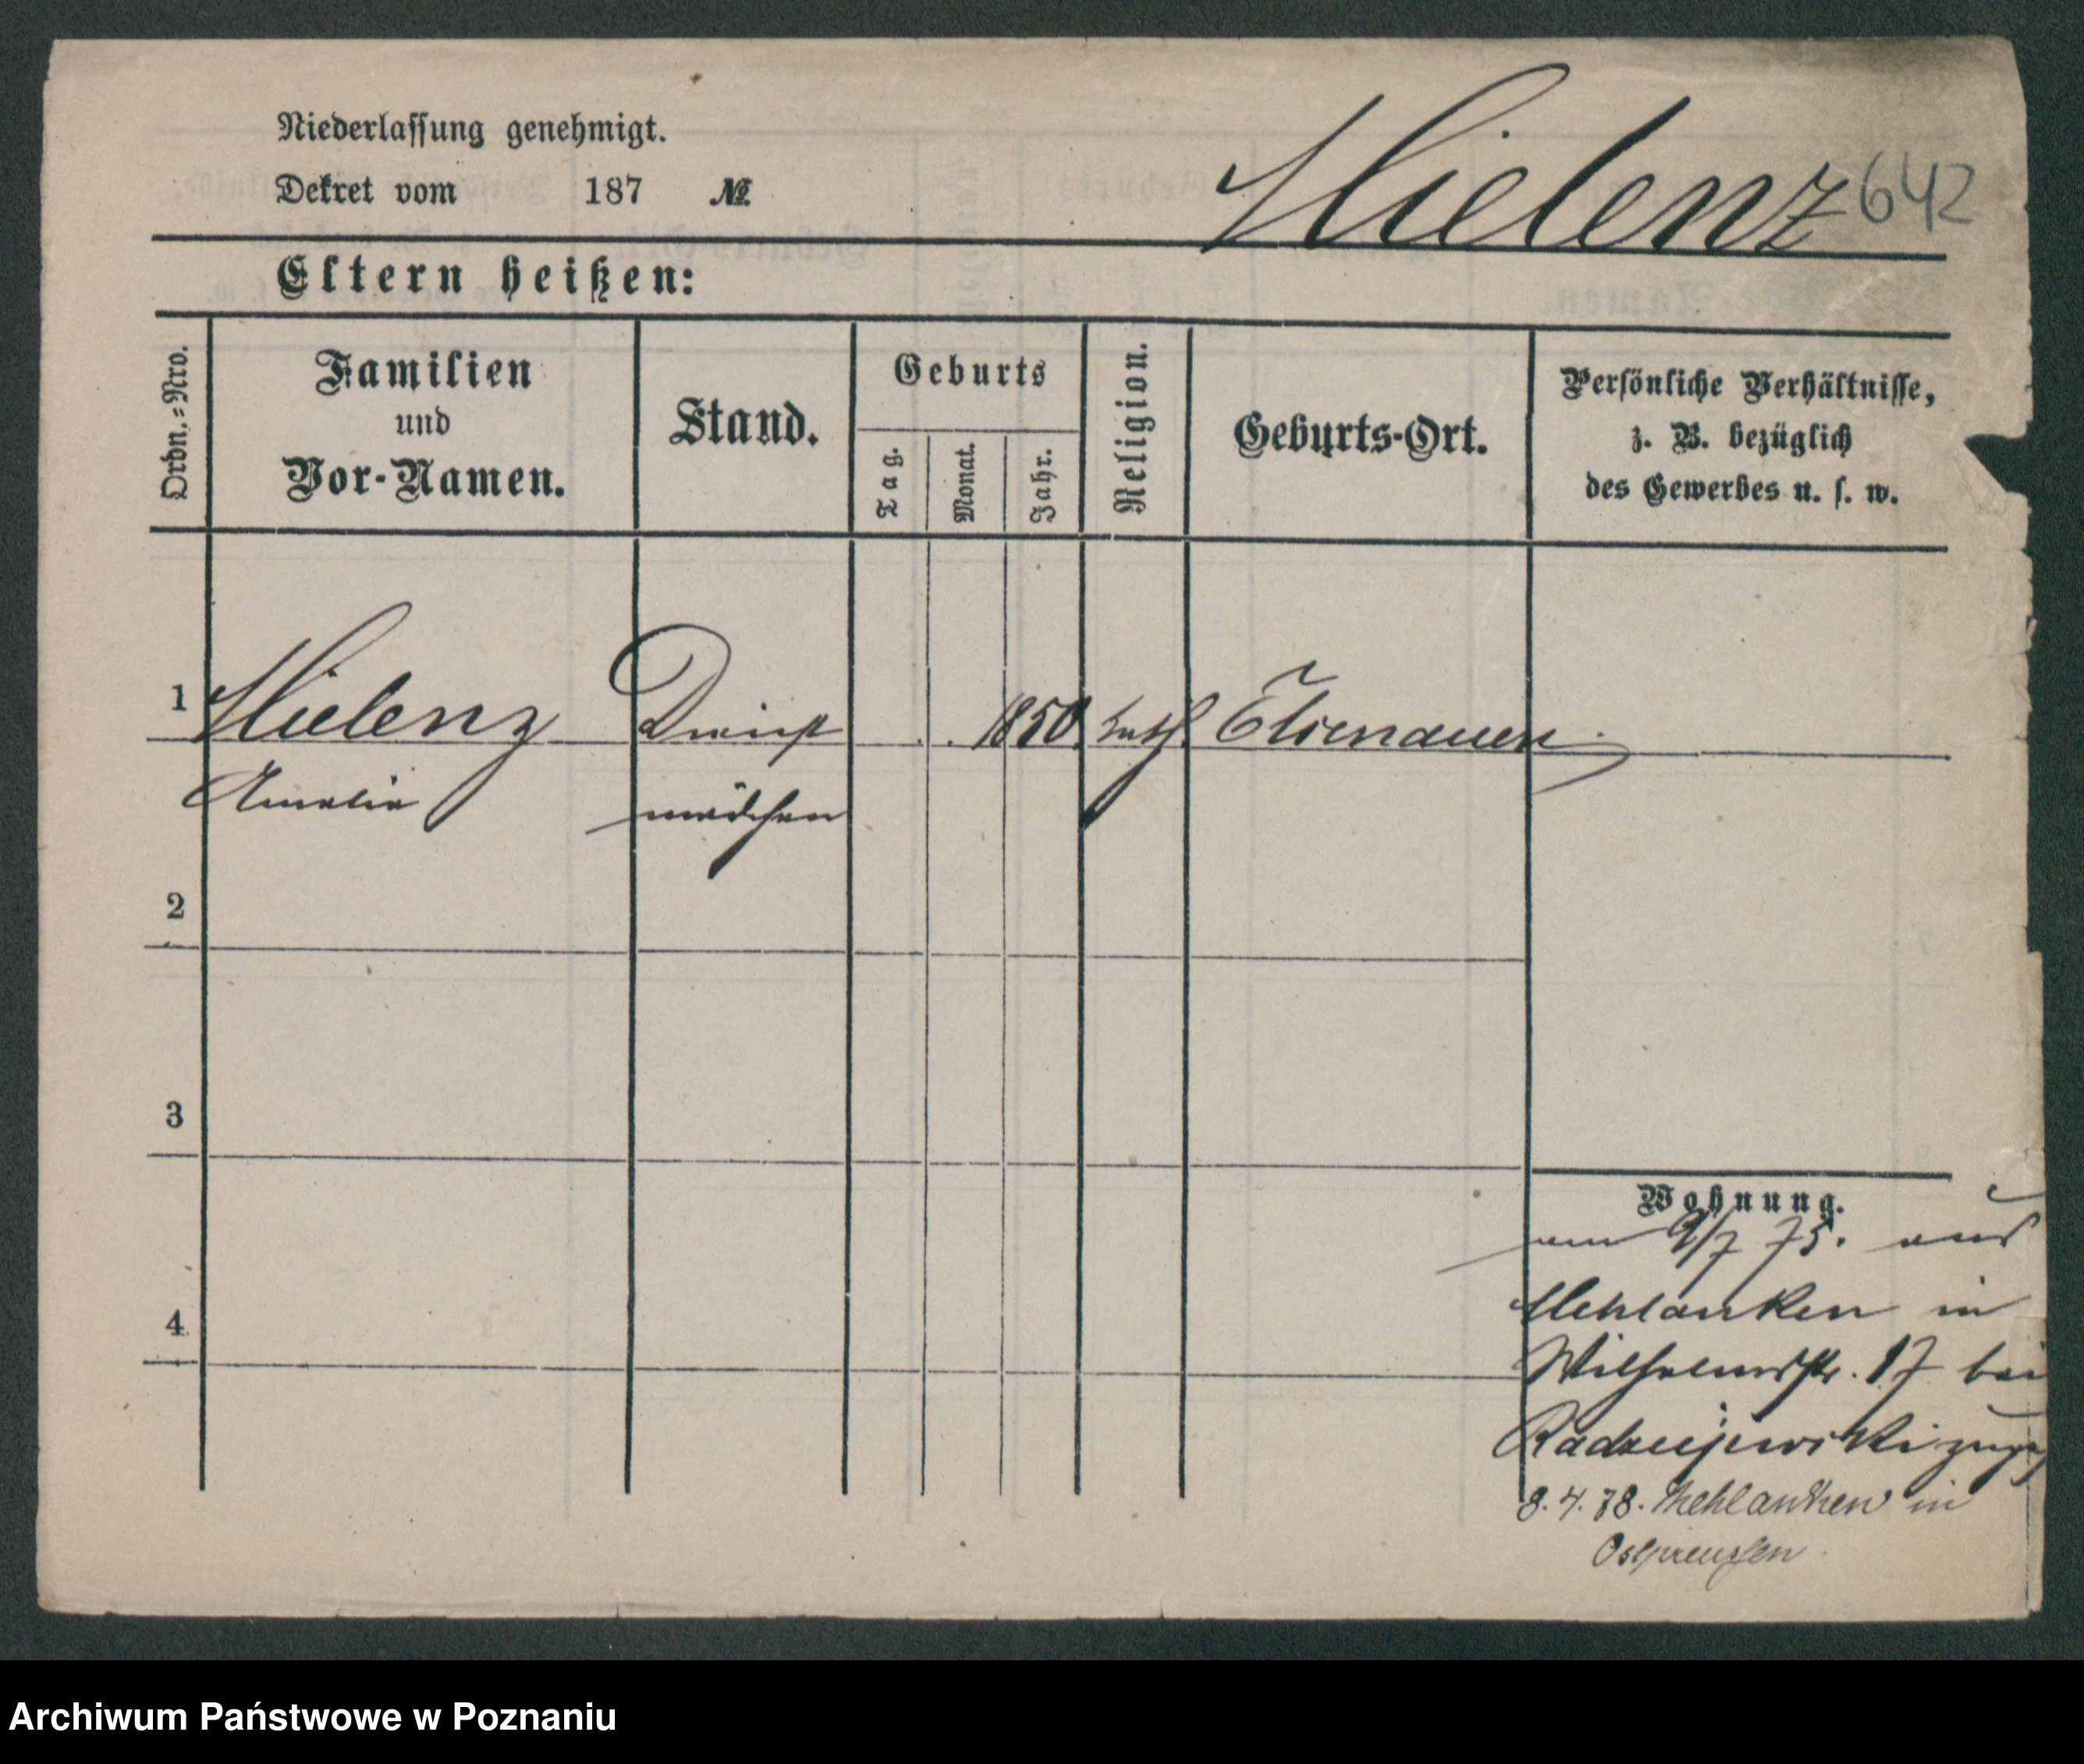 Niederlassung genehmigt.
Dekret vom 187 №
Mielenz 642
Eltern heißen:
Ordn.-Nro.
Familien
und
Vor-Namen.
Stand.
Geburts
Tag.
Monat.
Jahr.
Religion.
Geburts-Ort.
Persönliche Verhältnisse,
z. B. bezüglich
des Gewerbes u. s. w.
1 Mielenz Dienst 1850. kath.
Amalie mädchen
2
3
4
Wohnung.
am 9/7 75. aus
Mehlauken in
Wilhelmstr. 17 bei
Radziejewski
8.4.78. Mehlauken in
Ostpreußen.
Archiwum Państwowe w Poznaniu